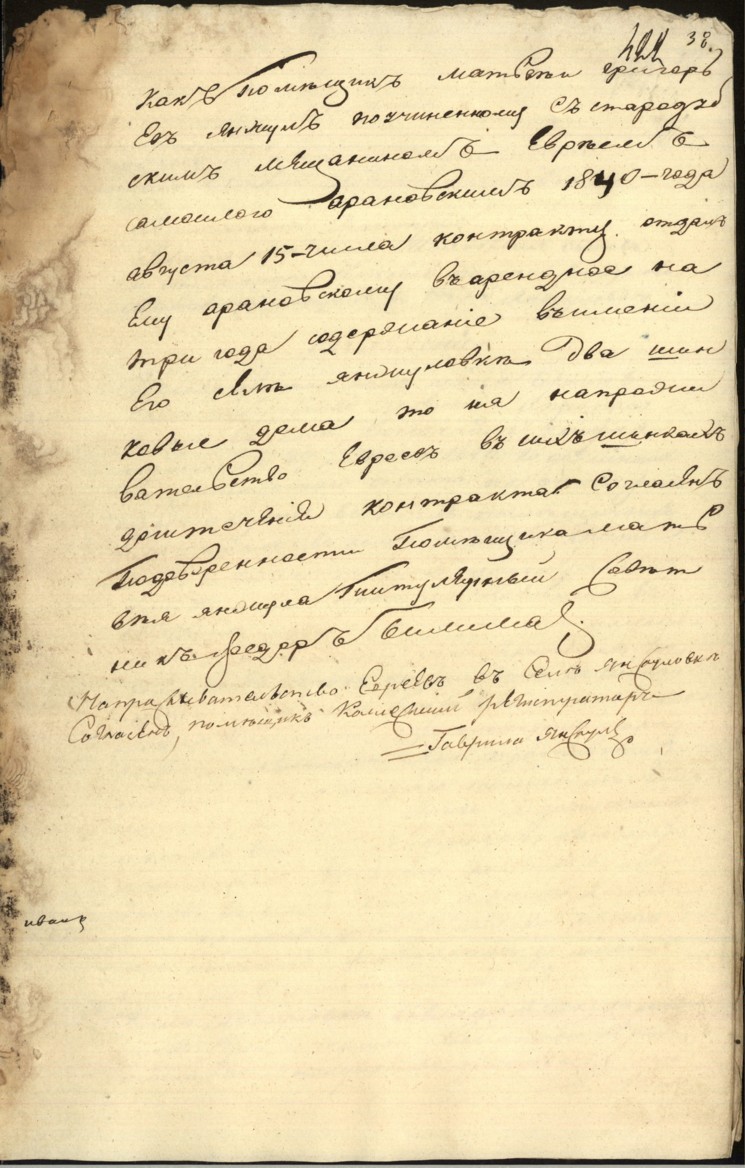 422 38.
Какъ Помѣщикъ Матвѣй Григорь
Евъ Янжулъ поучиненному съ стародуб
скимъ Мещаниномъ Евреемъ
самоилою Арановскимъ 1840-года
августа 15-числа контракту отдалъ
Ему Арановскому въарендное на
три года содержаніе въимении
Его селѣ Янжуловкѣ Два шин
ковые дома то на напрожи
вательство Евреевъ въ шинкахъ
доистеченія контракта Согласенъ
Подоверенности Помѣщика Матъ
вѣя Янжула Титулярный Совѣт
никъ Федоръ
Напраживательство Евреевъ въ Селѣ Янжуловкѣ
Согласенъ, помѣщикъ Колежскій регистраторъ
Гаврила Янжулъ
иванъ